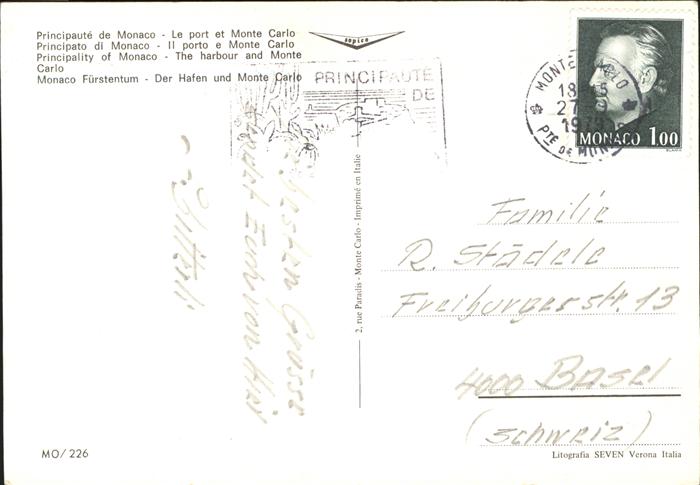 Principauté de Monaco - Le port et Monte Carlo
Principato di Monaco - Il porto e Monte Carlo
Principality of Monaco - The harbour and Monte
Carlo
Monaco Fürstentum - Der Hafen und Monte Carlo
sapico
PRINCIPAUTÉ
DE
MONTE-CARLO
18
27
19
PTE DE MONACO
MONACO 1,00
besten Grüsse
Euch von
2, rue Paradis - Monte Carlo - Imprimé en Italie
Familie
R. Städele
Freiburgerstr. 13
4000 Basel
(Schweiz)
MO/226
Litografia SEVEN Verona Italia